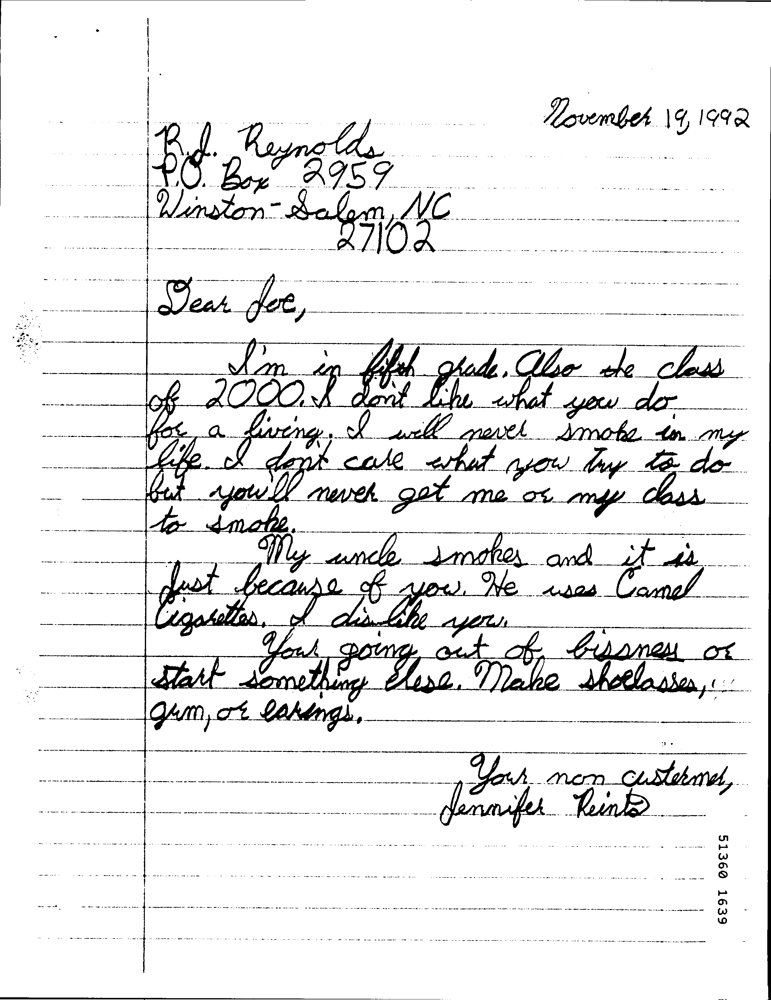 November 19, 1992
R.J. Reynolds
P.O. Box 2959
Winston-Salem, NC
27102
Dear Joe,
I'm in fifth grade. Also the class
of 2000. I don't like what you do
for a living. I will never smoke in my
life. I don't care what you try to do
but you'll never get me or my class
to smoke.
My uncle smokes and it is
Just because of you. He uses Camel
Cigarettes. I dislike you.
Your going out of bissness or
start something elese. Make shoelasses,
gum, or earings.
Your non custermer,
Jennifer Reints
51360 1639